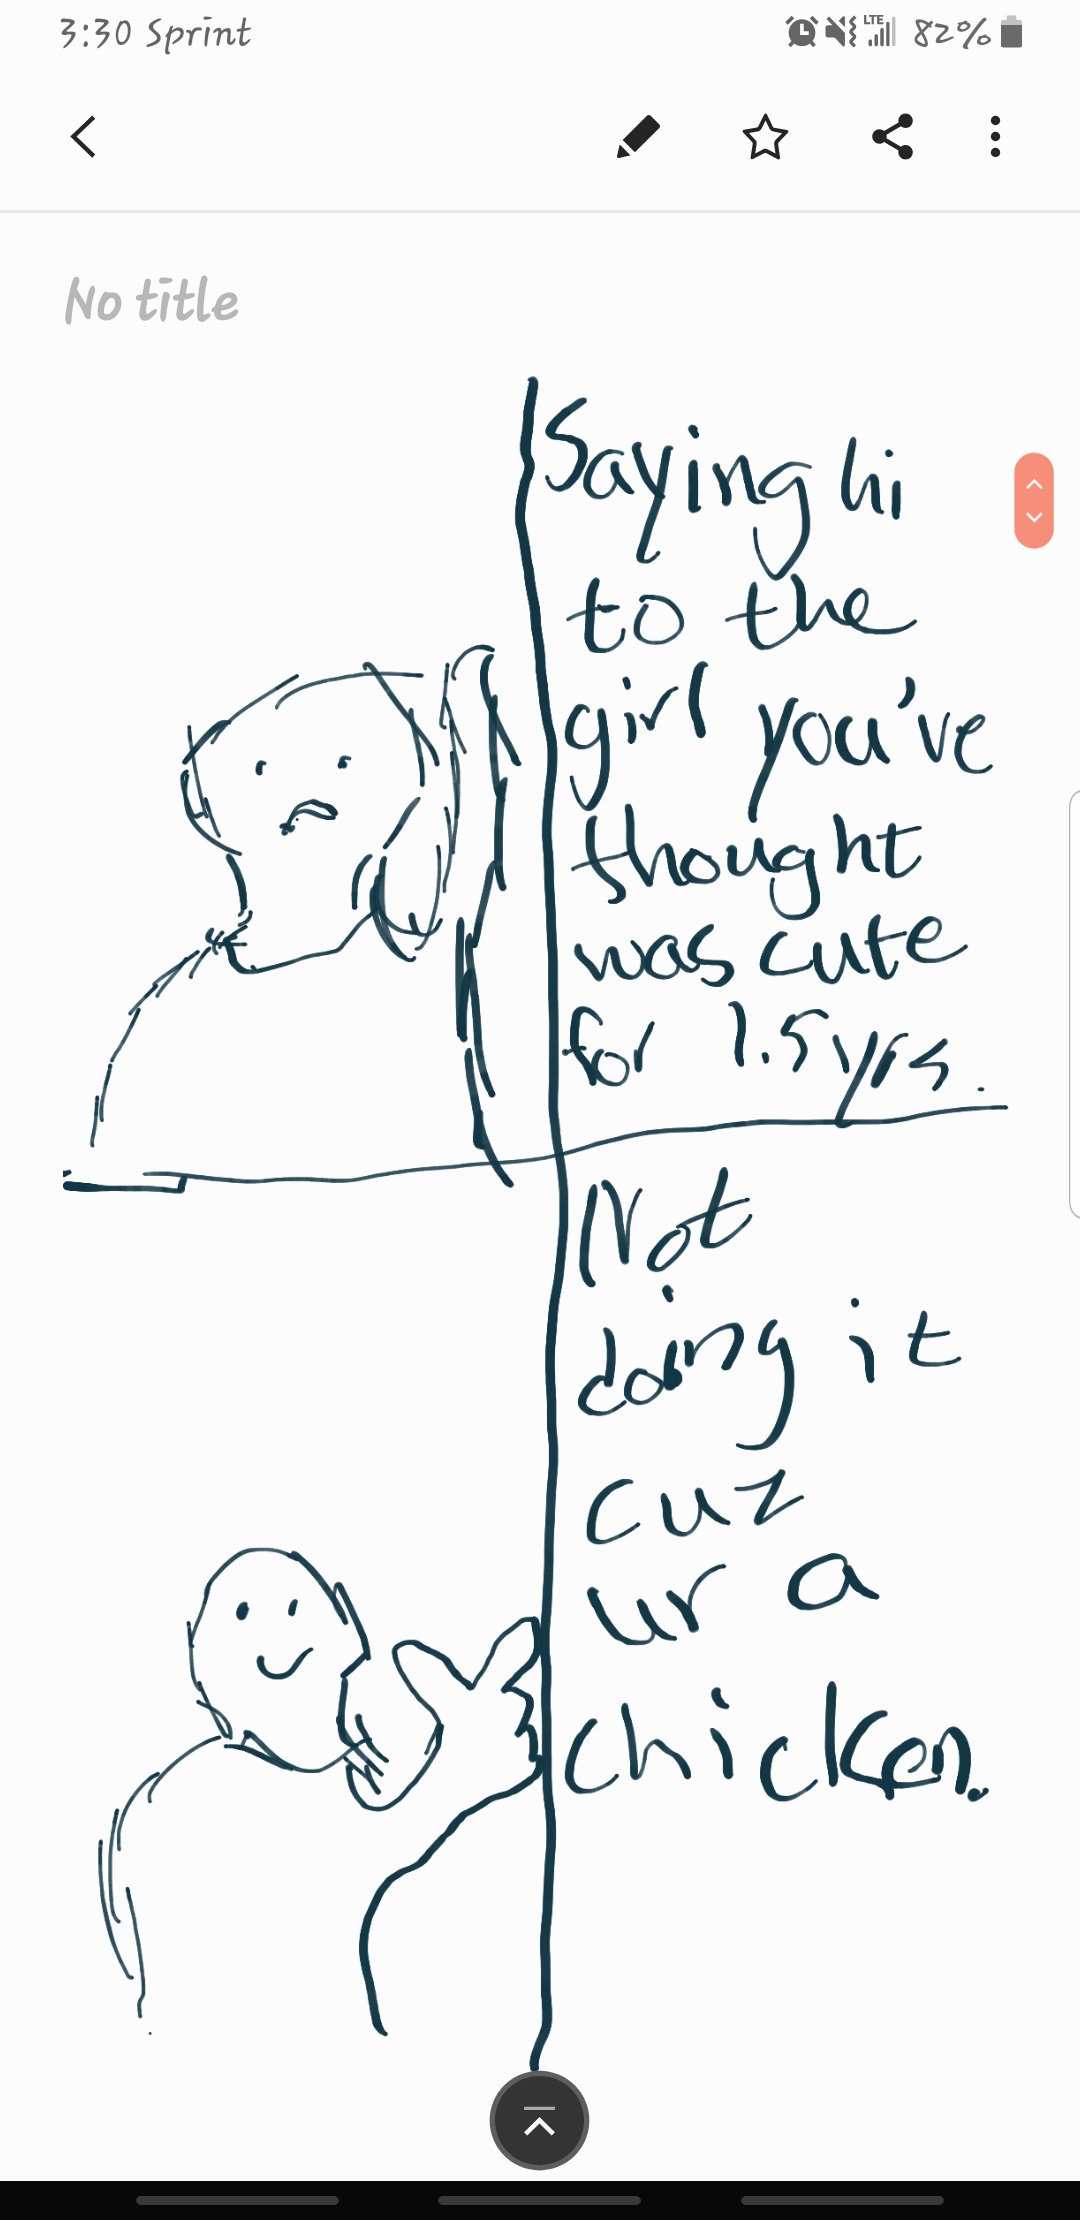 3:30 Sprint
LTE 82%
No title
Saying hi
to the
girl you've
thought
was cute
for 1.5yrs.
Not
doing it
cuz
ur a
chicken.